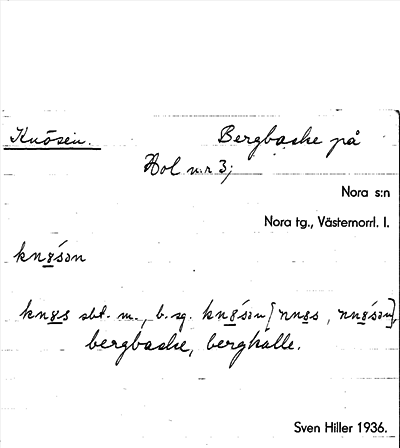 Knösen. Bergbacke på
Hol n:r 3;
Nora s:n
Nora tg., Västernorrl. l.
kn8̲́sən
kn8̲s sbt. m., b. sg. kn8̲́sən [nn8̲s, nn8̲́sən],
bergbacke, berghälle.
Sven Hiller 1936.